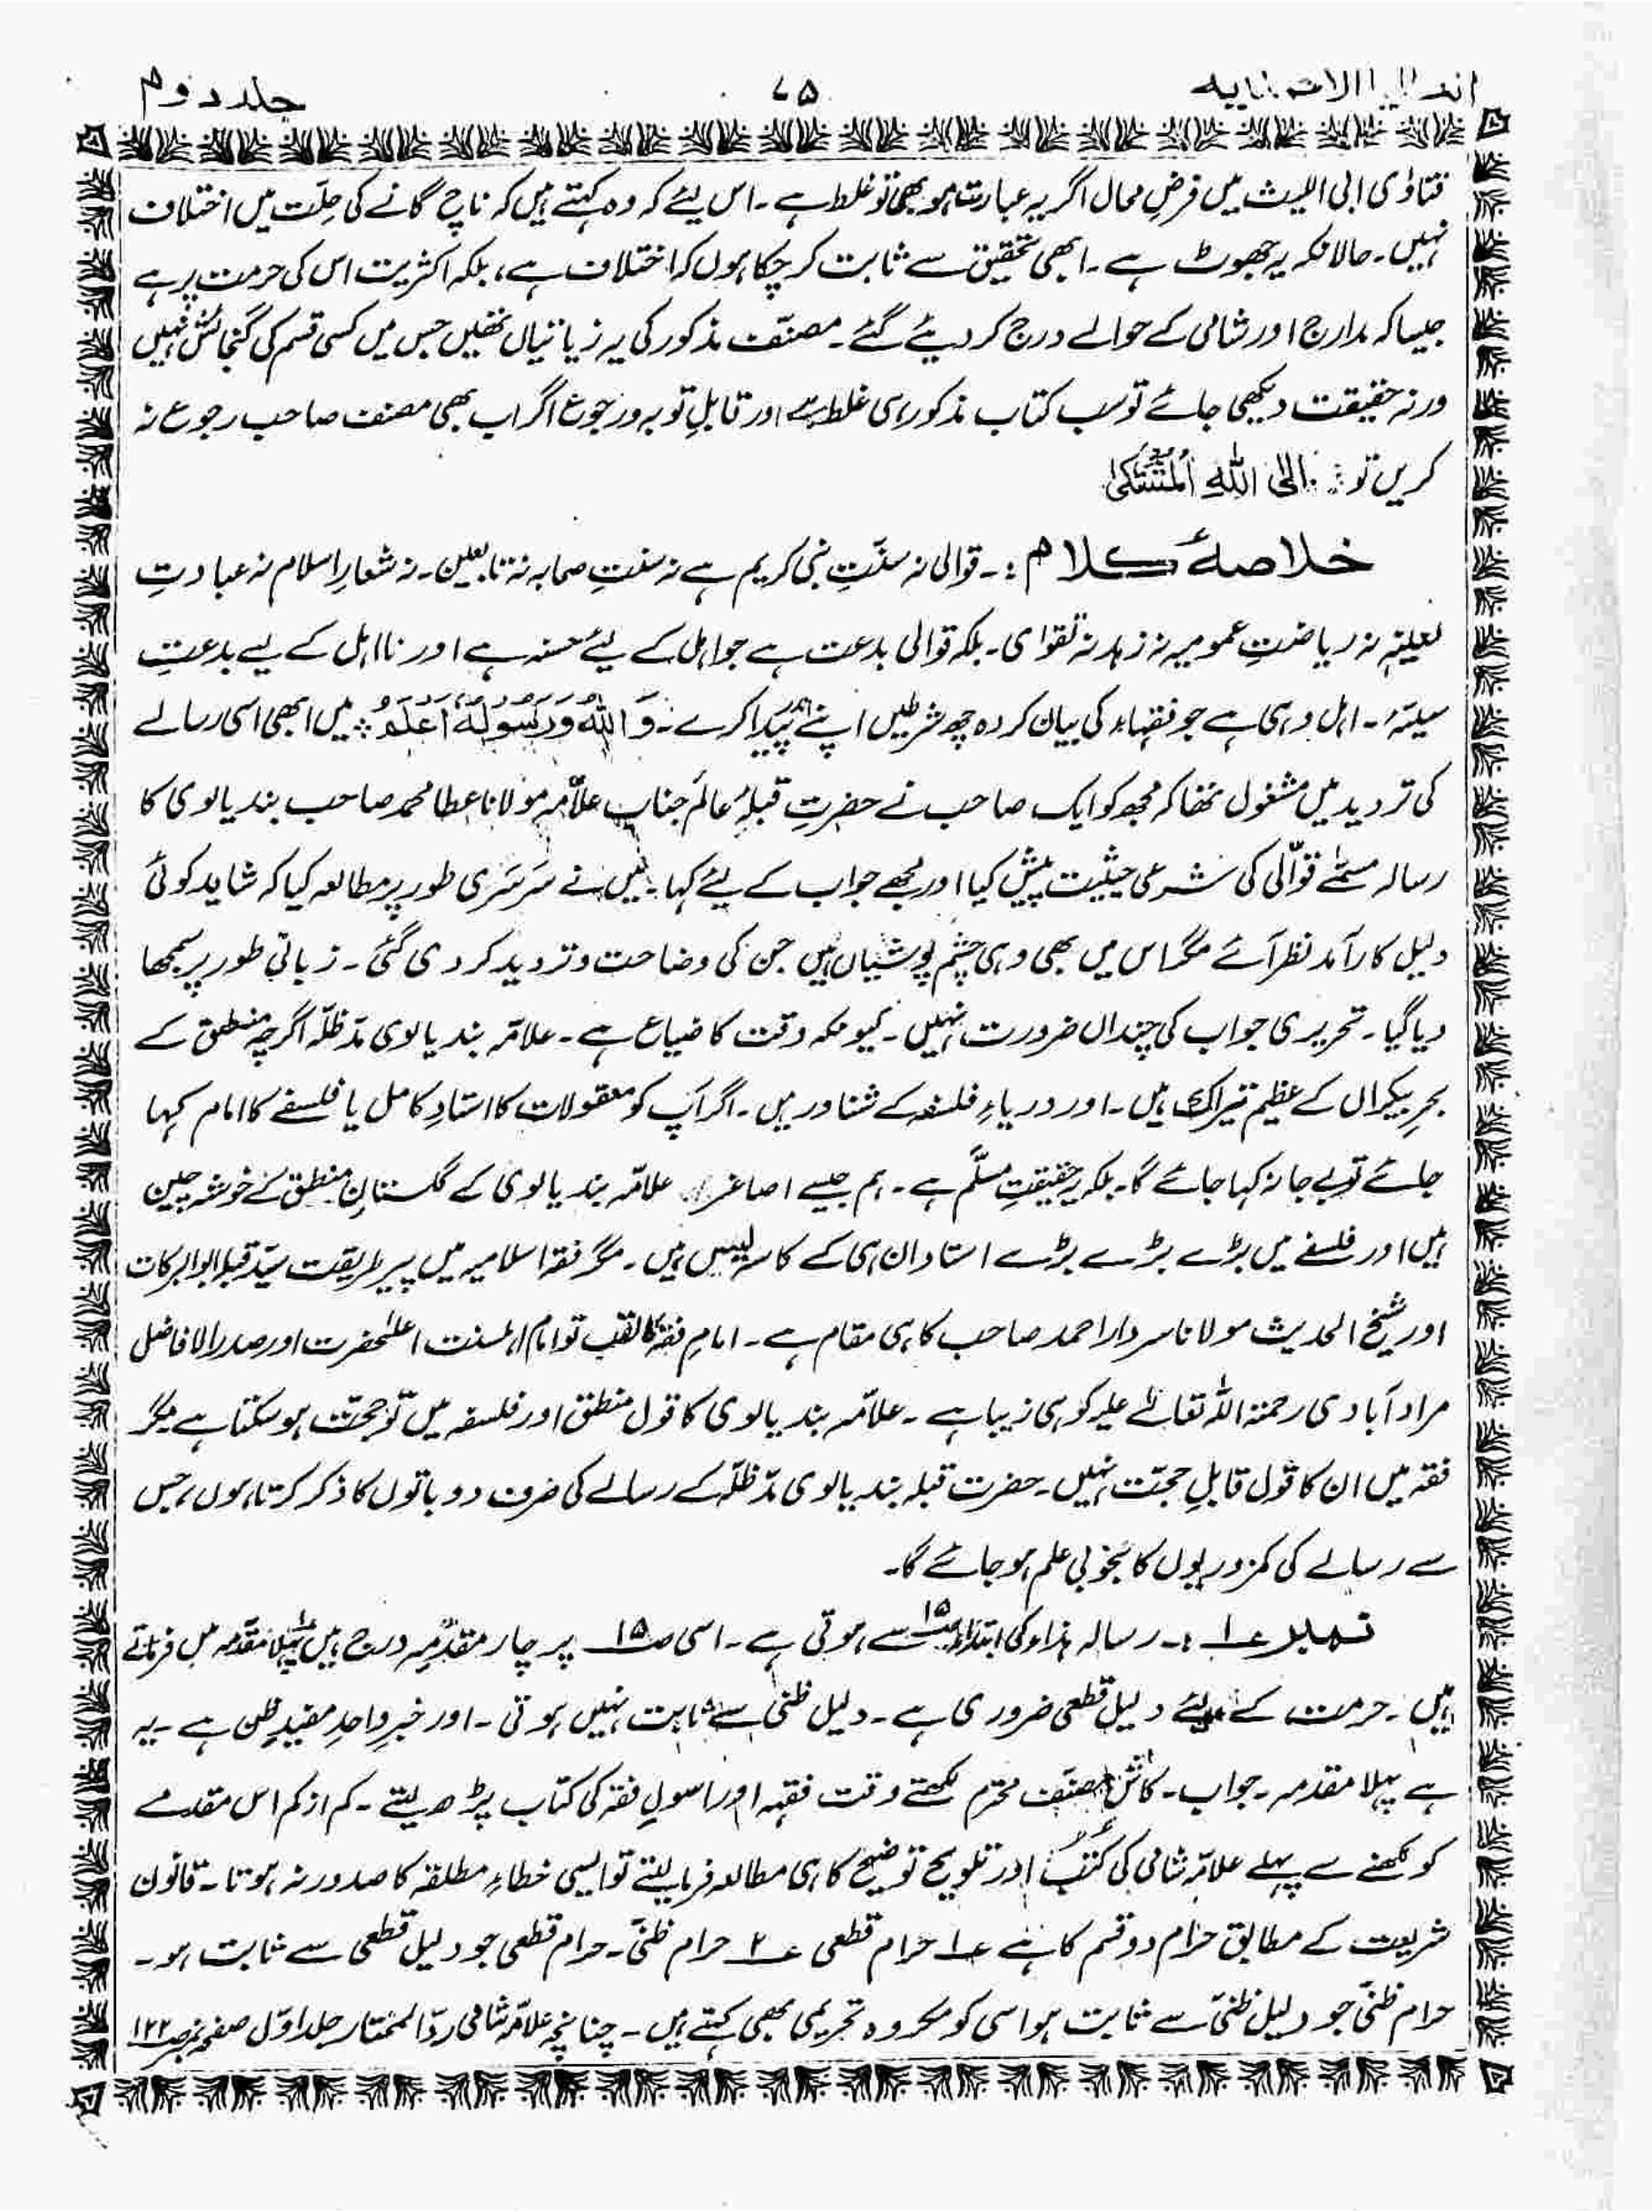 جلد دوم
۷۵
فتاوٰی ابی اللیث میں فرضِ محال اگر یہ عبارت ہو بھی تو غلط ہے۔ اس لیئے کہ وہ کہتے ہیں کہ ناچ گانے کی حِلّت میں اختلاف
نہیں۔ حالانکہ یہ جھوٹ ہے۔ ابھی تحقیق سے ثابت کر چکا ہوں کہ اختلاف ہے، بلکہ اکثریت اس کی حرمت پر ہے
جیسا کہ مدارج اور شامی کے حوالے درج کر دیئے گئے۔ مصنّف مذکور کی یہ زیانتیاں تھیں جس میں کسی قسم کی گنجائش نہیں
ورنہ حقیقت دیکھی جائے تو سب کتاب مذکور ہی غلط ہے اور قابلِ توبہ و رجوع اگر اب بھی مصنف صاحب رجوع نہ
کریں تو : اِلَی اللّٰہِ الْمُشْتَکٰی
خلاصۂ کلام :۔ قوالی نہ سنّتِ نبی کریم ہے نہ سنتِ صحابہ نہ تابعین۔ نہ شعارِ اسلام نہ عبادتِ
نعلیّہ نہ ریاضتِ عمومیہ نہ زہد نہ تقوٰی۔ بلکہ قوالی بدعت ہے جو اہل کے لیئے حسنہ ہے اور نااہل کے لیے بدعتِ
سیئہ۔ اہل وہی ہے جو فقہاء کی بیان کردہ چھ شرطیں اپنے میں پیدا کرے۔ وَاللّٰہُ وَرَسُوْلُہٗ اَعْلَمُ ؞ میں ابھی اسی رسالے
کی تردید میں مشغول تھا کہ مجھ کو ایک صاحب نے حضرتِ قبلۂ عالَم جناب علاّمہ مولانا عطا محمد صاحب بندیالوی کا
رسالہ مسمّٰے قوّالی کی شرعی حیثیت پیش کیا اور مجھے جواب کے لیئے کہا۔ میں نے سَرسَری طور پر مطالعہ کیا کہ شاید کوئی
دلیل کارآمد نظر آئے مگر اس میں بھی وہی چشم پوشیاں ہیں جن کی وضاحت و تردید کر دی گئی۔ زبانی طور پر سمجھا
دیا گیا۔ تحریری جواب کی چنداں ضرورت نہیں۔ کیونکہ وقت کا ضیاع ہے۔ علامہ بندیالوی مدّظلّہ اگرچہ منطق کے
بحرِ بیکراں کے عظیم تیراک ہیں۔ اور دریاءِ فلسفہ کے شناور ہیں۔ اگر آپ کو معقولات کا استادِ کامل یا فلسفے کا امام کہا
جائے تو بے جا نہ کہا جائے گا۔ بلکہ یہ حقیقتِ مسلّم ہے۔ ہم جیسے اصاغر علامہ بندیالوی کے گلستانِ منطق کے خوشہ چین
ہیں اور فلسفے میں بڑے بڑے بڑے استاد ان ہی کے کاسہ لیس ہیں۔ مگر فقہ اسلامیہ میں پیر طریقت سیّد قبلہ ابوالبرکات
اور شیخ الحدیث مولانا سردار احمد صاحب کا ہی مقام ہے۔ امامِ فقہ کا لقب تو امام اہلسنت اعلٰحضرت اور صدرالافاضل
مراد آبادی رحمۃ اللہ تعالٰے علیہ کو ہی زیبا ہے۔ علاّمہ بندیالوی کا قول منطق اور فلسفہ میں تو حجّت ہو سکتا ہے مگر
فقہ میں ان کا قول قابلِ حجّت نہیں۔ حضرت قبلہ بندیالوی مدّظلّہ کے رسالے کی صرف دو باتوں کا ذکر کرتا ہوں، جس
سے رسالے کی کمزوریوں کا بخوبی علم ہو جائے گا۔
نمبر ۱ :۔ رسالہ ہذاء کی ابتداء ص۱۵ سے ہوتی ہے۔ اسی ص۱۵ پر چار مقدّمہ درج ہیں پہلا مقدّمہ میں فرماتے
ہیں۔ حرمت کے لیئے دلیل قطعی ضروری ہے۔ دلیل ظنّی سے ثابت نہیں ہوتی۔ اور خبرِ واحد مفیدِ ظن ہے۔ یہ
ہے پہلا مقدمہ۔ جواب۔ کاش مصنّف محترم لکھتے وقت فقہہ اور اسولِ فقہ کی کتاب پڑھ لیتے۔ کم از کم اس مقدمے
کو لکھنے سے پہلے علامّہ شامی کی کُتُب اور تلویح توضیح کا ہی مطالعہ فرما لیتے تو ایسی خطاءِ مطلقہ کا صدور نہ ہوتا۔ قانون
شریعت کے مطابق حرام دو قسم کا ہے ۱ حرام قطعی ۲ حرام ظنّی۔ حرام قطعی جو دلیل قطعی سے ثابت ہو۔
حرام ظنّی جو دلیل ظنّی سے ثابت ہو اسی کو مکروہ تحریمی بھی کہتے ہیں۔ چنانچہ علاّمہ شامی ردّ المختار جلد اوّل صفحہ نمبر ۱۲۲